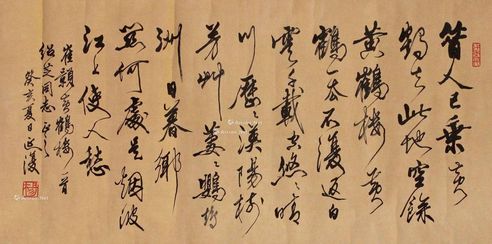 昔人已乘黄
鶴去此地空餘
黄鶴樓黄
鶴一去不復返白
雲千載空悠〻晴
川歷〻漢陽樹
芳艸萋〻鸚鵡
洲日暮鄉
關何處是烟波
江上使人愁
崔顥黄鶴樓一首
同志正之
癸亥夏日延